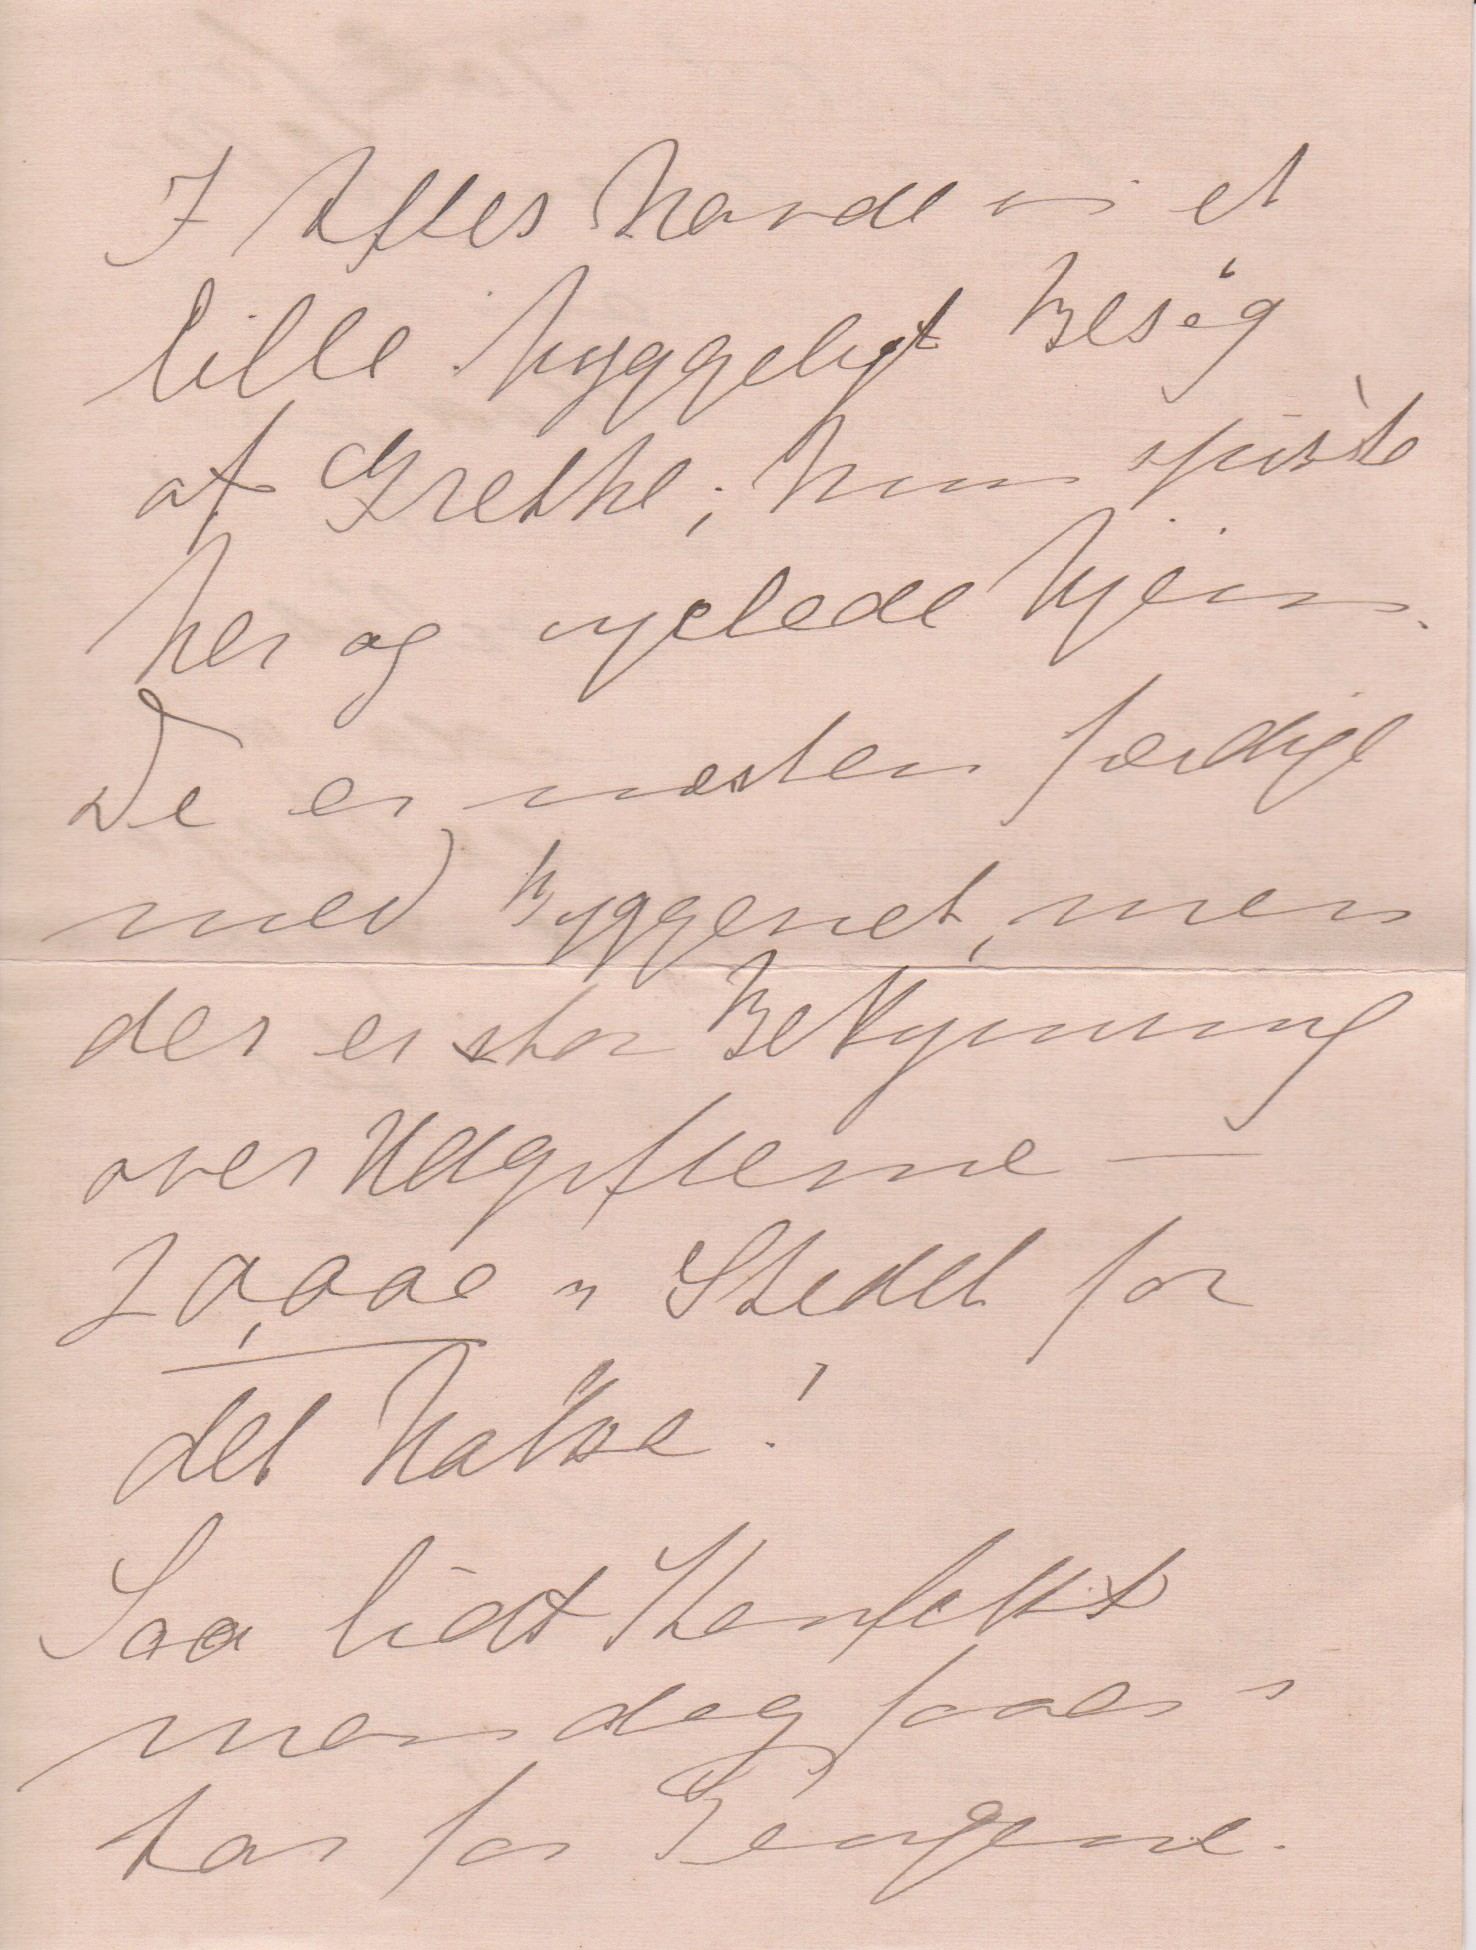 I Aftes havde vi et
lille hyggeligt Besøg
af Grethe; hun spiste
her og cyclede hjem.
De er næsten færdige
med Byggeriet, men
der er stor Bekymring
over Udgifterne —
20,000 i Stedet for
det halve!
Saa lidt Konfekt
man dog faaer i
for Pengene.